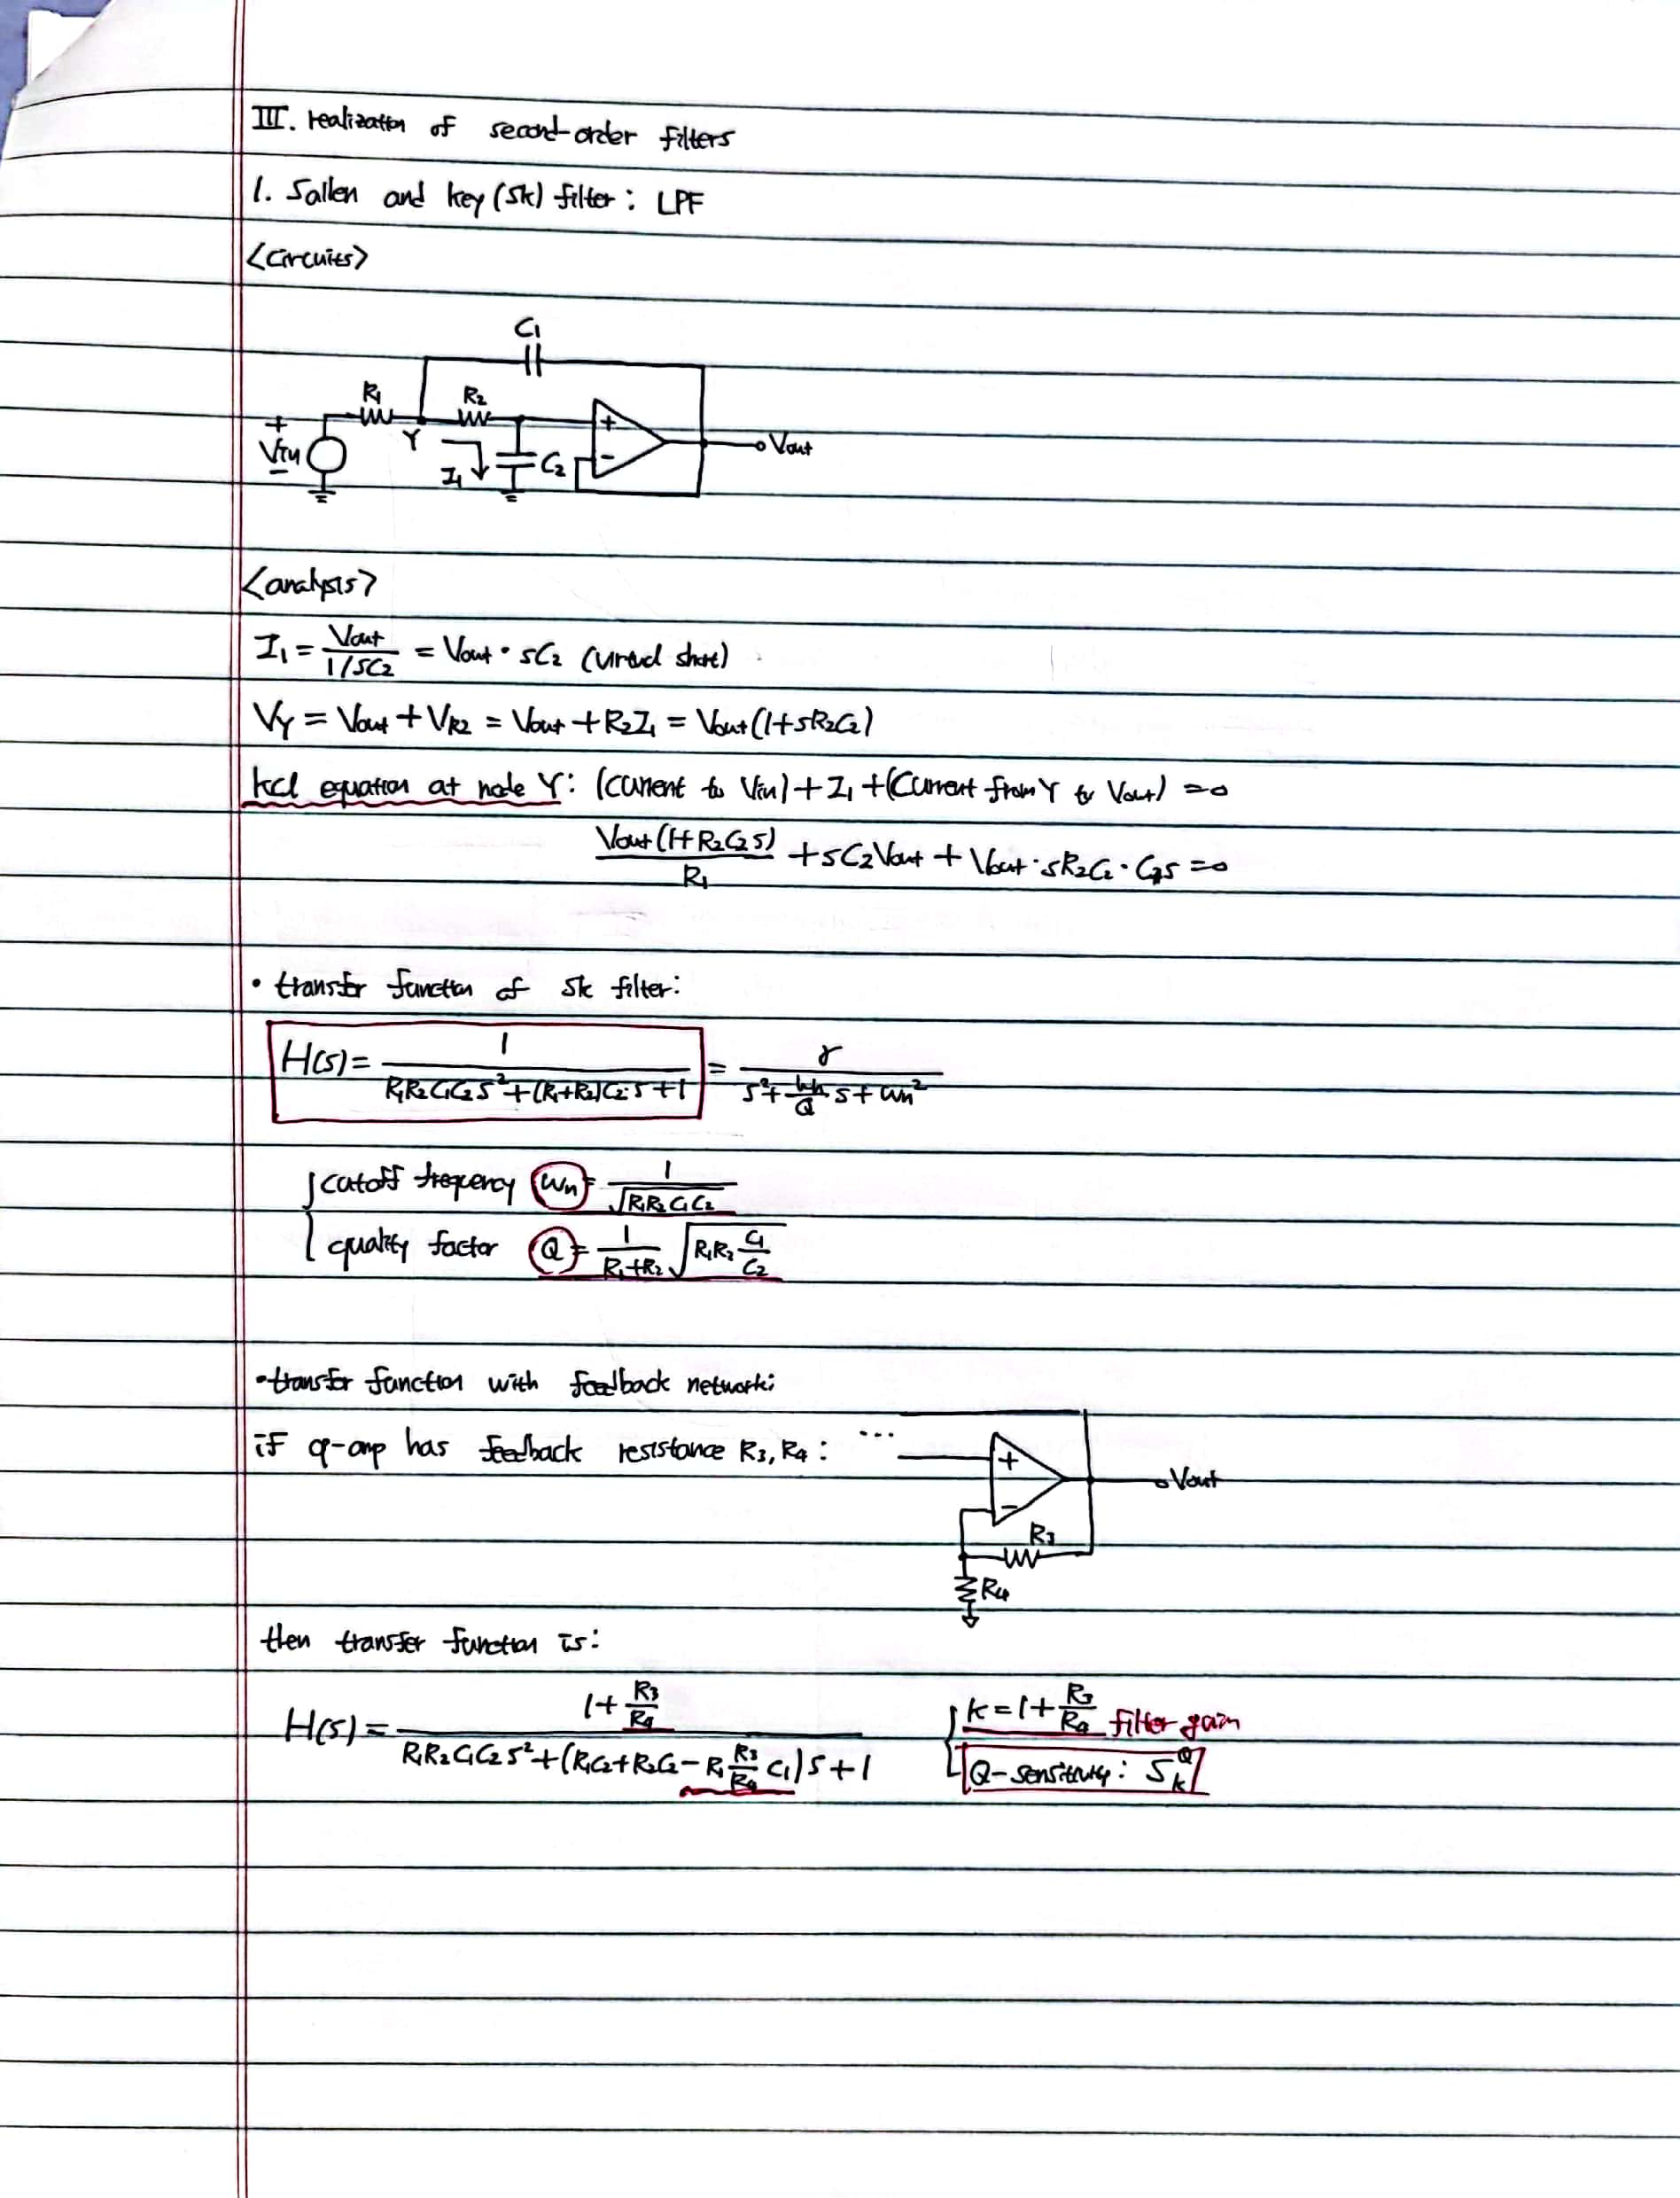 III. realization of second-order filters
1. Sallen and key (SK) filter: LPF
<Circuits>
C1
R1 R2
+ Vin − Y I1 C2 + − Vout
<analysis>
I1 = Vout / (1/SC2) = Vout · SC2 (virtual short)
VY = Vout + VR2 = Vout + R2I1 = Vout(1+SR2C2)
kcl equation at node Y: (current to Vin) + I1 + (current from Y to Vout) = 0
Vout(1+R2C2S) / R1 + SC2Vout + Vout·SR2C2·C1S = 0
• transfer function of SK filter:
H(s) = 1 / (R1R2C1C2S² + (R1+R2)C2·S + 1) = γ / (S² + (ωn/Q)S + ωn²)
cutoff frequency ωn = 1 / √(R1R2C1C2)
quality factor Q = 1/(R1+R2) √(R1R2 C1/C2)
• transfer function with feedback network:
if op-amp has feedback resistance R3, R4: ...
+ − Vout
R3
R4
then transfer function is:
H(s) = (1 + R3/R4) / (R1R2C1C2S² + (R1C2+R2C2−R1 (R3/R4) C1)S + 1)
k = 1 + R3/R4 filter gain
Q-sensitivity: S_k^Q